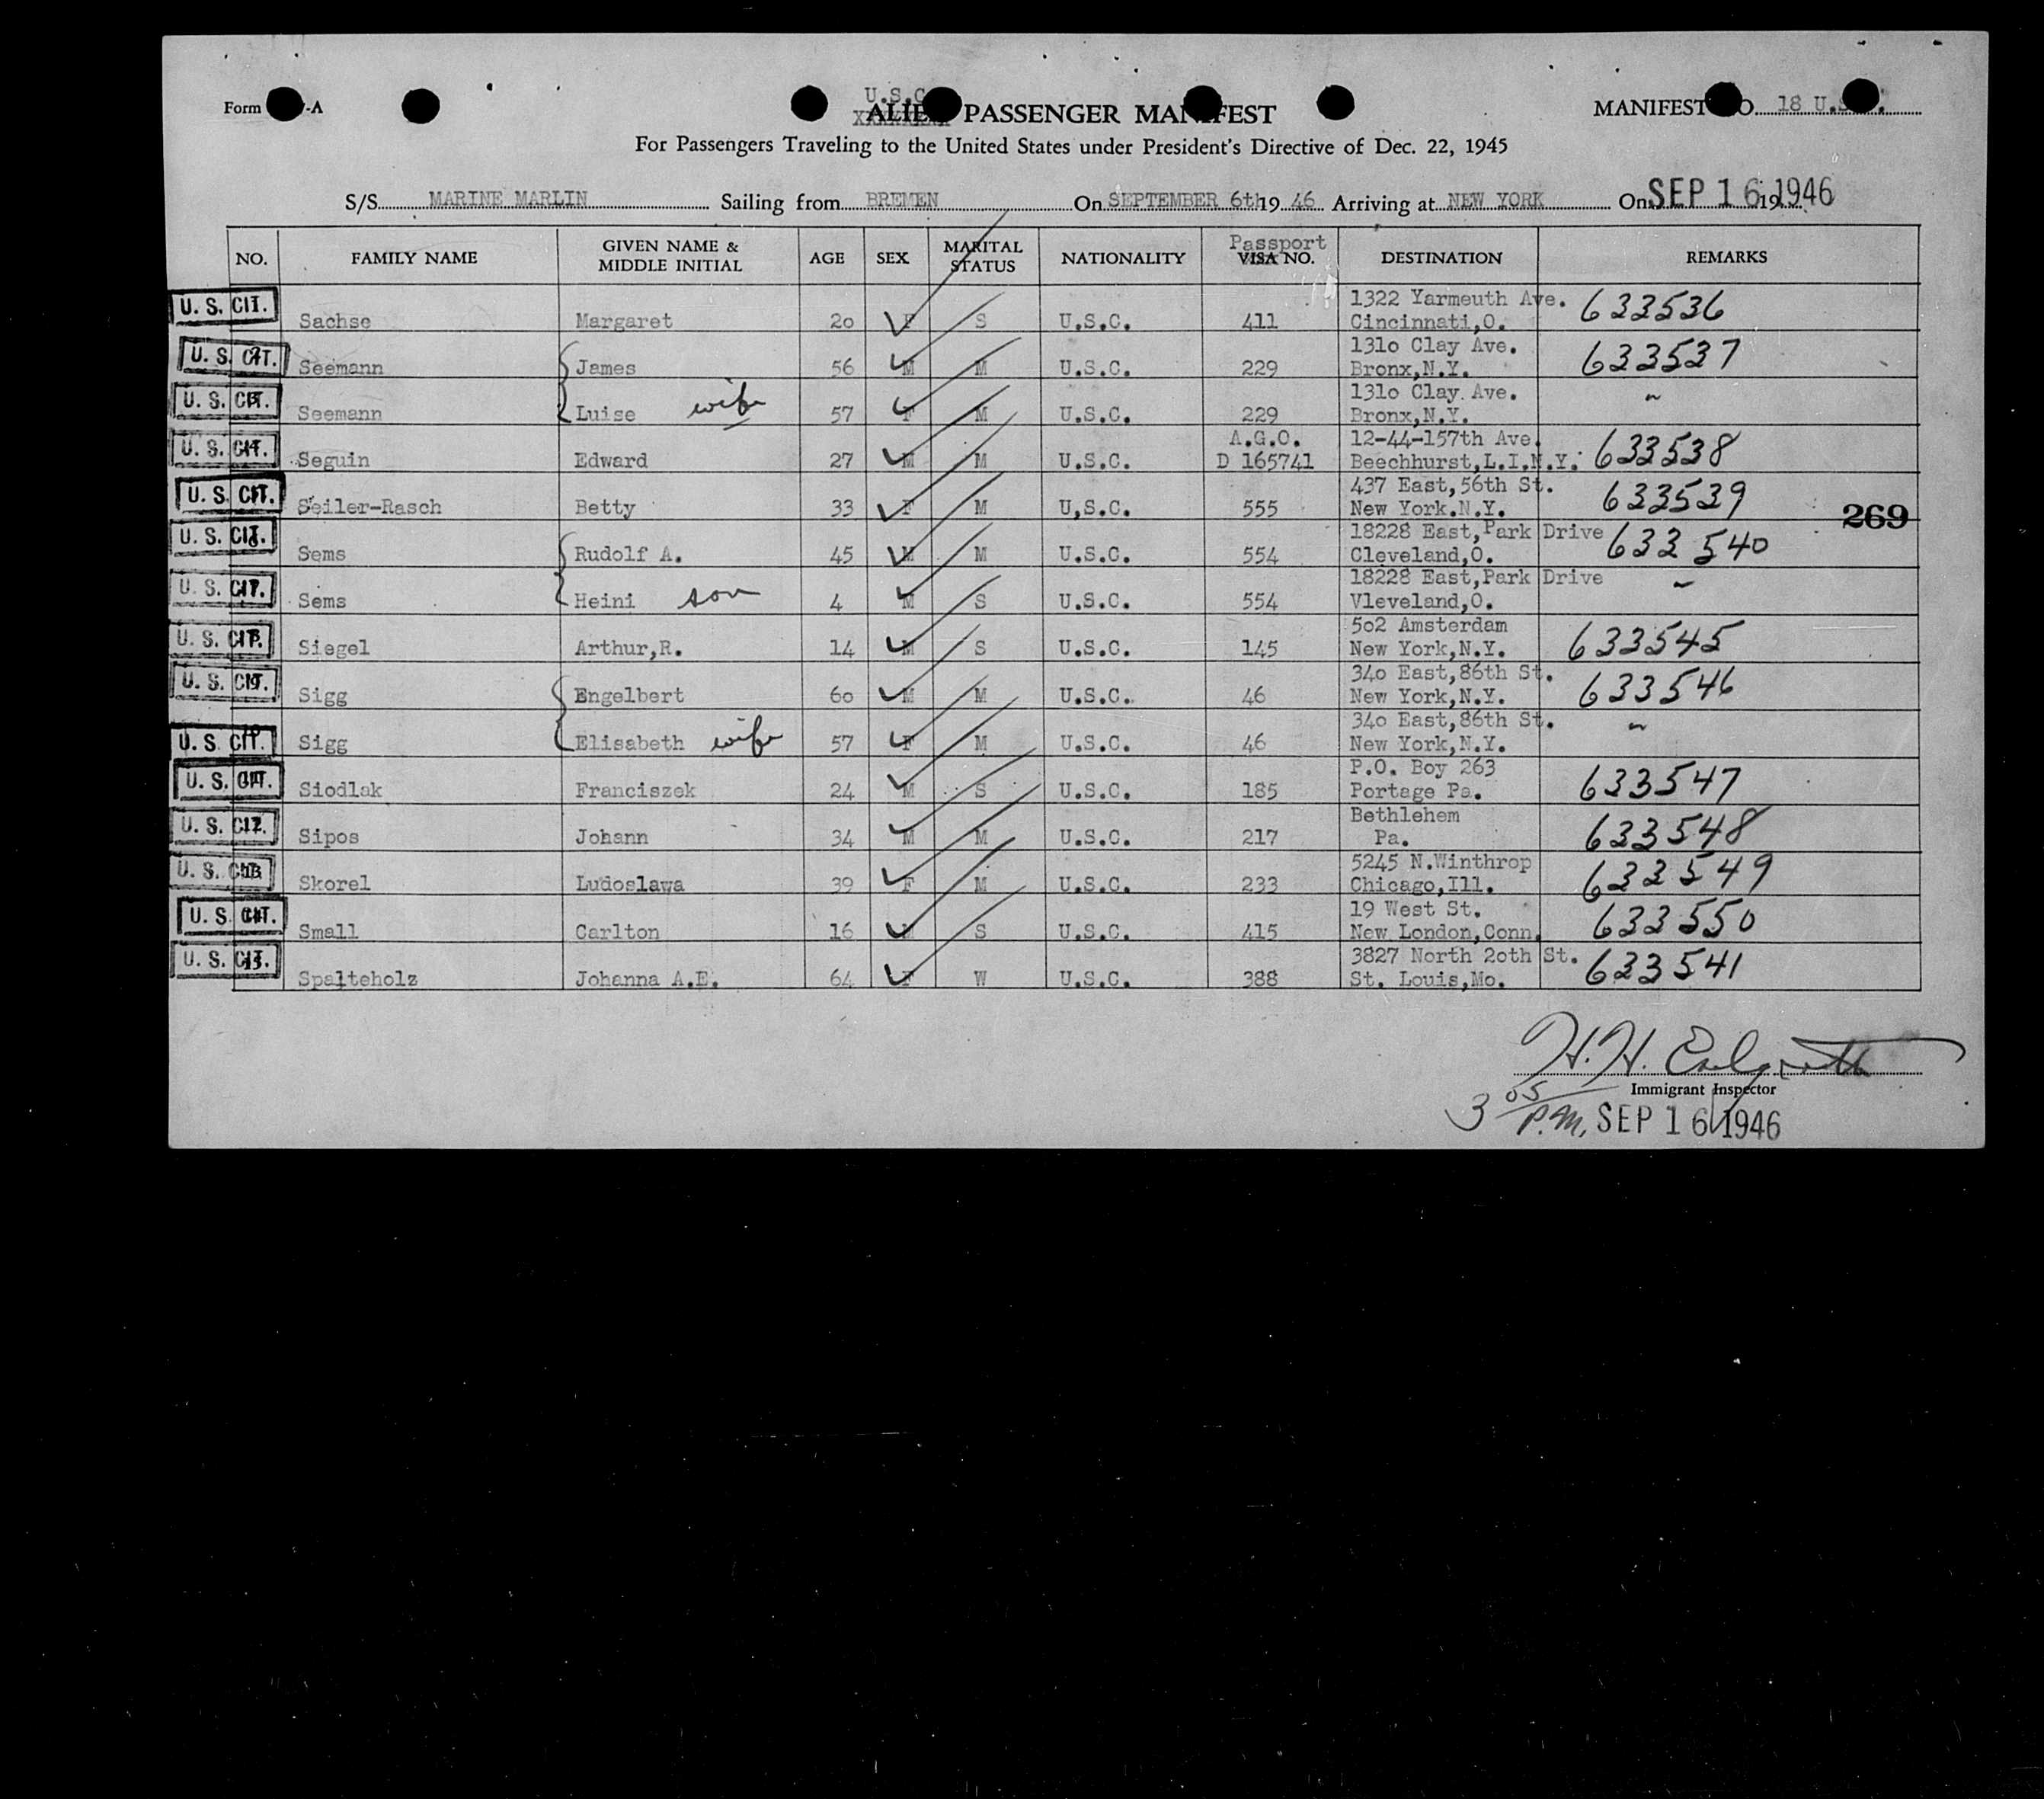 U.S.C.
Form -A
ALIEN PASSENGER MANIFEST
MANIFEST NO. 18 U.S.C.
For Passengers Traveling to the United States under President's Directive of Dec. 22, 1945
S/S MARINE MARLIN Sailing from BREMEN On SEPTEMBER 6th 19 46 Arriving at NEW YORK On SEP 16 1946 19
NO. FAMILY NAME GIVEN NAME & MIDDLE INITIAL AGE SEX MARITAL STATUS NATIONALITY Passport VISA NO. DESTINATION REMARKS
U. S. CIT. 1 Sachse Margaret 20 F S U.S.C. 411 1322 Yarmeuth Ave. Cincinnati,O. 633536
U. S. CIT. 2 Seemann James 56 M M U.S.C. 229 1310 Clay Ave. Bronx,N.Y. 633537
U. S. CIT. 3 Seemann Luise wife 57 F M U.S.C. 229 1310 Clay Ave. Bronx,N.Y. ~
U. S. CIT. 4 Seguin Edward 27 M M U.S.C. A.G.O. D 165741 12-44-157th Ave. Beechhurst,L.I.N.Y. 633538
U. S. CIT. 5 Seiler-Rasch Betty 33 F M U,S.C. 555 437 East,56th St. New York.N.Y. 633539
269
U. S. CIT. 6 Sems Rudolf A. 45 M M U.S.C. 554 18228 East,Park Drive Cleveland,O. 633540
U. S. CIT. 7 Sems Heini son 4 M S U.S.C. 554 18228 East,Park Drive Vleveland,O. ~
U. S. CIT. 8 Siegel Arthur,R. 14 M S U.S.C. 145 502 Amsterdam New York,N.Y. 633545
U. S. CIT. 9 Sigg Engelbert 60 M M U.S.C. 46 340 East,86th St. New York,N.Y. 633546
U. S. CIT. 10 Sigg Elisabeth wife 57 F M U.S.C. 46 340 East,86th St. New York,N.Y. ~
U. S. CIT. 11 Siodlak Franciszek 24 M S U.S.C. 185 P.O. Boy 263 Portage Pa. 633547
U. S. CIT. 12 Sipos Johann 34 M M U.S.C. 217 Bethlehem Pa. 633548
U. S. CIT. 13 Skorel Ludoslawa 39 F M U.S.C. 233 5245 N.Winthrop Chicago,Ill. 633549
U. S. CIT. 14 Small Carlton 16 M S U.S.C. 415 19 West St. New London,Conn. 633550
U. S. CIT. 15 Spalteholz Johanna A.E. 64 F W U.S.C. 388 3827 North 20th St. St. Louis,Mo. 633541
H. H.
Immigrant Inspector
3 05 P.M. SEP 16 1946